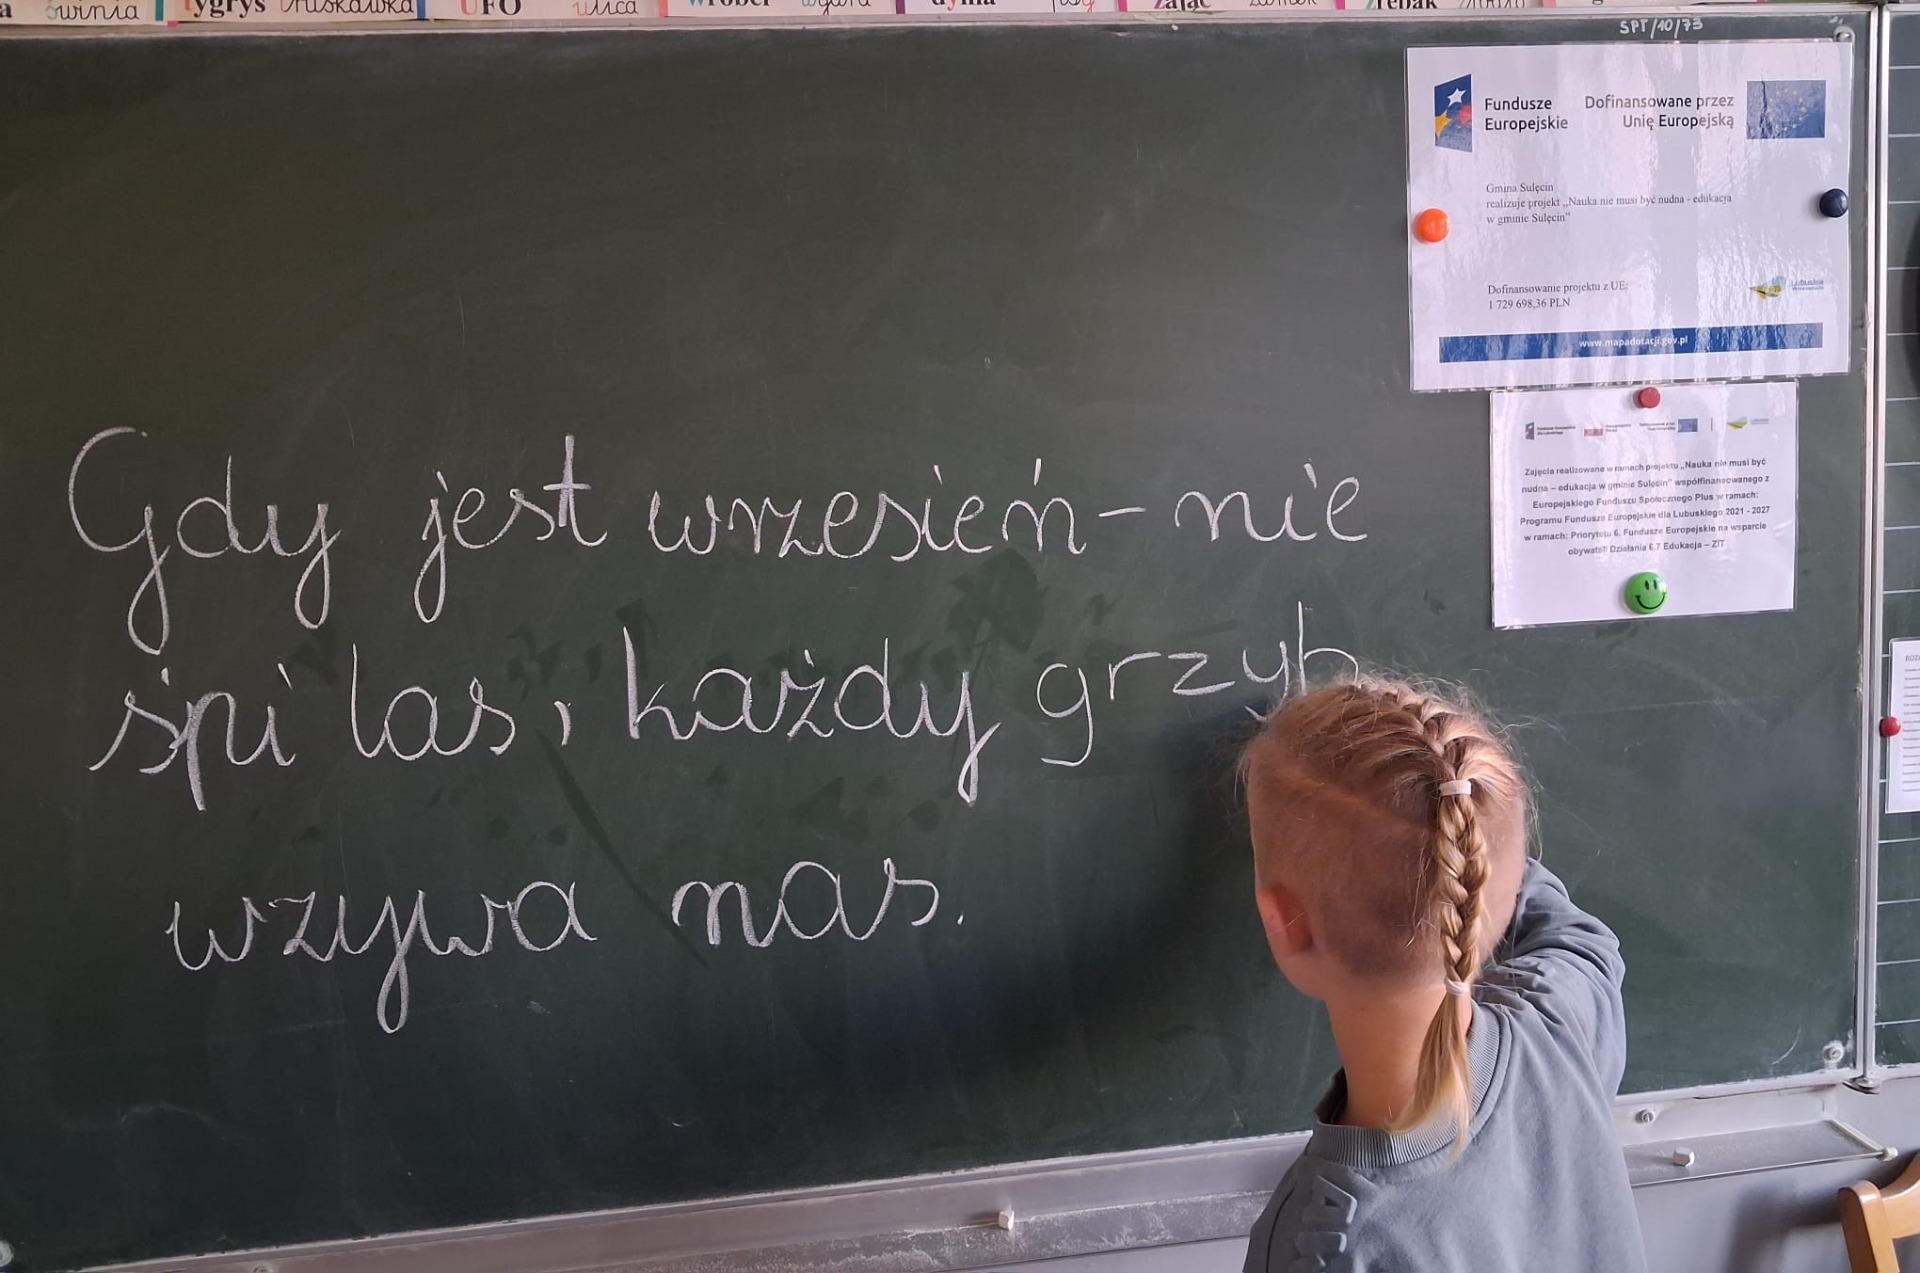 świnia tygrys truskawka UFO ulica
SPT/10/73
Fundusze Europejskie
Dofinansowane przez Unię Europejską
Gmina Sulęcin
realizuje projekt „Nauka nie musi być nudna - edukacja
w gminie Sulęcin”
Dofinansowanie projektu z UE:
1 729 698,36 PLN
www.mapadotacji.gov.pl
Zajęcia realizowane w ramach projektu „Nauka nie musi być
nudna – edukacja w gminie Sulęcin” współfinansowanego z
Europejskiego Funduszu Społecznego Plus w ramach:
Programu Fundusze Europejskie dla Lubuskiego 2021 - 2027
w ramach: Priorytetu 6. Fundusze Europejskie na wsparcie
obywateli Działania 6.7 Edukacja – ZIT
Gdy jest wrzesień - nie
śpi las, każdy grzyb
wzywa nas.